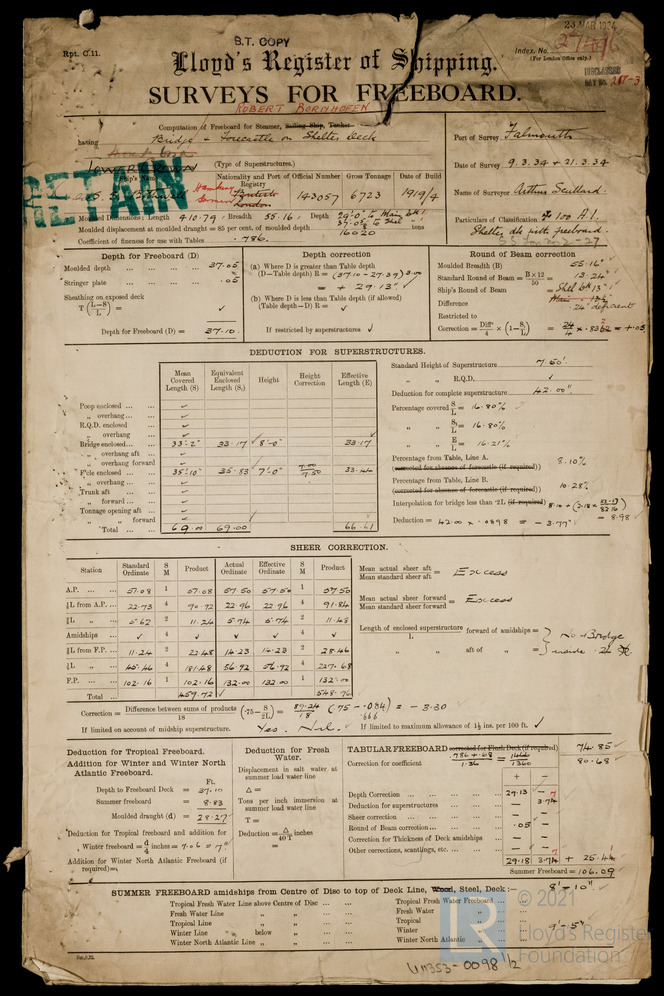 23 MAR 1934
B.T. COPY
Rpt. C.11.
Index. No.
(For London Office only.)
Lloyd's Register of Shipping.
SURVEYS FOR FREEBOARD.
ROBERT BORNHOFEN
Computation of Freeboard for Steamer, Sailing Ship, Tanker
having Bridge & Forecastle on Shelter deck
(Type of Superstructures.)
RETAIN
Ship's Name
Nationality and Port of Registry
Official Number
Gross Tonnage
Date of Build
Hamburg
German
London
143057
6723
1919/4
Port of Survey Falmouth
Date of Survey 9.3.34 + 21.3.34
Name of Surveyor Arthur
Particulars of Classification 100 A1.
Shelter dk with freeboard.
Moulded Dimensions: Length 410.79 Breadth 55.16 Depth
Moulded displacement at moulded draught = 85 per cent. of moulded depth 16020 tons
Coefficient of fineness for use with Tables .786
Depth for Freeboard (D)
Moulded depth 37.05
Stringer plate .05
Sheathing on exposed deck
T (L-S/L) = ✓
Depth for Freeboard (D) = 37.10
Depth correction
(a) Where D is greater than Table depth
(D—Table depth) R = (37.10 - 27.39) 3.00
= + 29.13"
(b) Where D is less than Table depth (if allowed)
(Table depth—D) R = ✓
If restricted by superstructures ✓
Round of Beam correction
Moulded Breadth (B) 55.16'
Standard Round of Beam = B×12/50 = 13.24"
Ship's Round of Beam = Shel dk 13"
Difference .24" deficient
Restricted to
Correction = Diff/4 × (1-S₁/L) = .24/4 × .8362 = +.05
DEDUCTION FOR SUPERSTRUCTURES.
Mean Covered Length (S)
Equivalent Enclosed Length (S₁)
Height
Height Correction
Effective Length (E)
Poop enclosed
„ overhang
R.Q.D. enclosed
„ overhang
Bridge enclosed 33'-2" 33.17 8'-0" 33.17
„ overhang aft
„ overhang forward
F'cle enclosed 35'-10" 35.83 7'-0" 7.00/7.50 33.44
„ overhang
Trunk aft
„ forward
Tonnage opening aft
„ „ forward
Total 69.00 69.00 66.61
Standard Height of Superstructure 7.50'
„ „ R.Q.D. ✓
Deduction for complete superstructure 42.00"
Percentage covered S/L = 16.80%
„ „ S₁/L = 16.80%
„ „ E/L = 16.21%
Percentage from Table, Line A. 8.10%
(corrected for absence of forecastle (if required))
Percentage from Table, Line B. 10.28%
(corrected for absence of forecastle (if required))
Interpolation for bridge less than ·2L (if required) = 8.98
Deduction = 42.00 × .0898 = - 3.77"
SHEER CORRECTION.
Station
Standard Ordinate
S M
Product
Actual Ordinate
Effective Ordinate
S M
Product
A.P. 57.08 1 57.08 57.50 57.50 1 57.50
⅙L from A.P. 22.73 4 90.92 22.96 22.96 4 91.84
⅓L „ 5.62 2 11.24 5.74 5.74 2 11.48
Amidships ✓ 4 ✓ ✓ ✓ 4 ✓
⅓L from F.P. 11.24 2 22.48 14.23 14.23 2 28.46
⅙L „ 45.46 4 181.48 56.92 56.92 4 227.68
F.P. 102.16 1 102.16 132.00 132.00 1 132.00
Total 459.72 548.96
Mean actual sheer aft / Mean standard sheer aft = Excess
Mean actual sheer forward / Mean standard sheer forward = Excess
Length of enclosed superstructure/L forward of amidships =
„ „ aft of „ =
No Bridge inside
Correction = Difference between sums of products/18 (·75-S/2L) = 89.24/18 (.75 - .084) = - 3.30
.666
If limited on account of midship superstructure. Yes. Nil.
If limited to maximum allowance of 1½ ins. per 100 ft. ✓
Deduction for Tropical Freeboard.
Addition for Winter and Winter North Atlantic Freeboard.
Ft.
Depth to Freeboard Deck = 37.10
Summer freeboard = 8.83
Moulded draught (d) = 28.27
Deduction for Tropical freeboard and addition for
Winter freeboard = d/4 inches = 7.06 = 7"
Addition for Winter North Atlantic Freeboard (if required)=
Deduction for Fresh Water.
Displacement in salt water at summer load water line
Δ =
Tons per inch immersion at summer load water line
T =
Deduction = Δ/40T inches
=
TABULAR FREEBOARD corrected for Flush Deck (if required) 74.85
Correction for coefficient .786 + .68/1.36 = 1.466/1.360 80.68
+ -
Depth Correction 29.13 -
Deduction for superstructures - 3.74
Sheer correction - -
Round of Beam correction .05 -
Correction for Thickness of Deck amidships - -
Other corrections, scantlings, etc. - -
29.18 3.74 + 25.44
Summer Freeboard = 106.09
SUMMER FREEBOARD amidships from Centre of Disc to top of Deck Line, Wood, Steel, Deck:— 8'-10"
Tropical Fresh Water Line above Centre of Disc
Fresh Water Line „ „
Tropical Line „ „
Winter Line below „
Winter North Atlantic Line „ „
Tropical Fresh Water Freeboard
Fresh Water „
Tropical „
Winter „ 9'-5"
Winter North Atlantic „
© 2021
LR
Lloyd's Register
Foundation